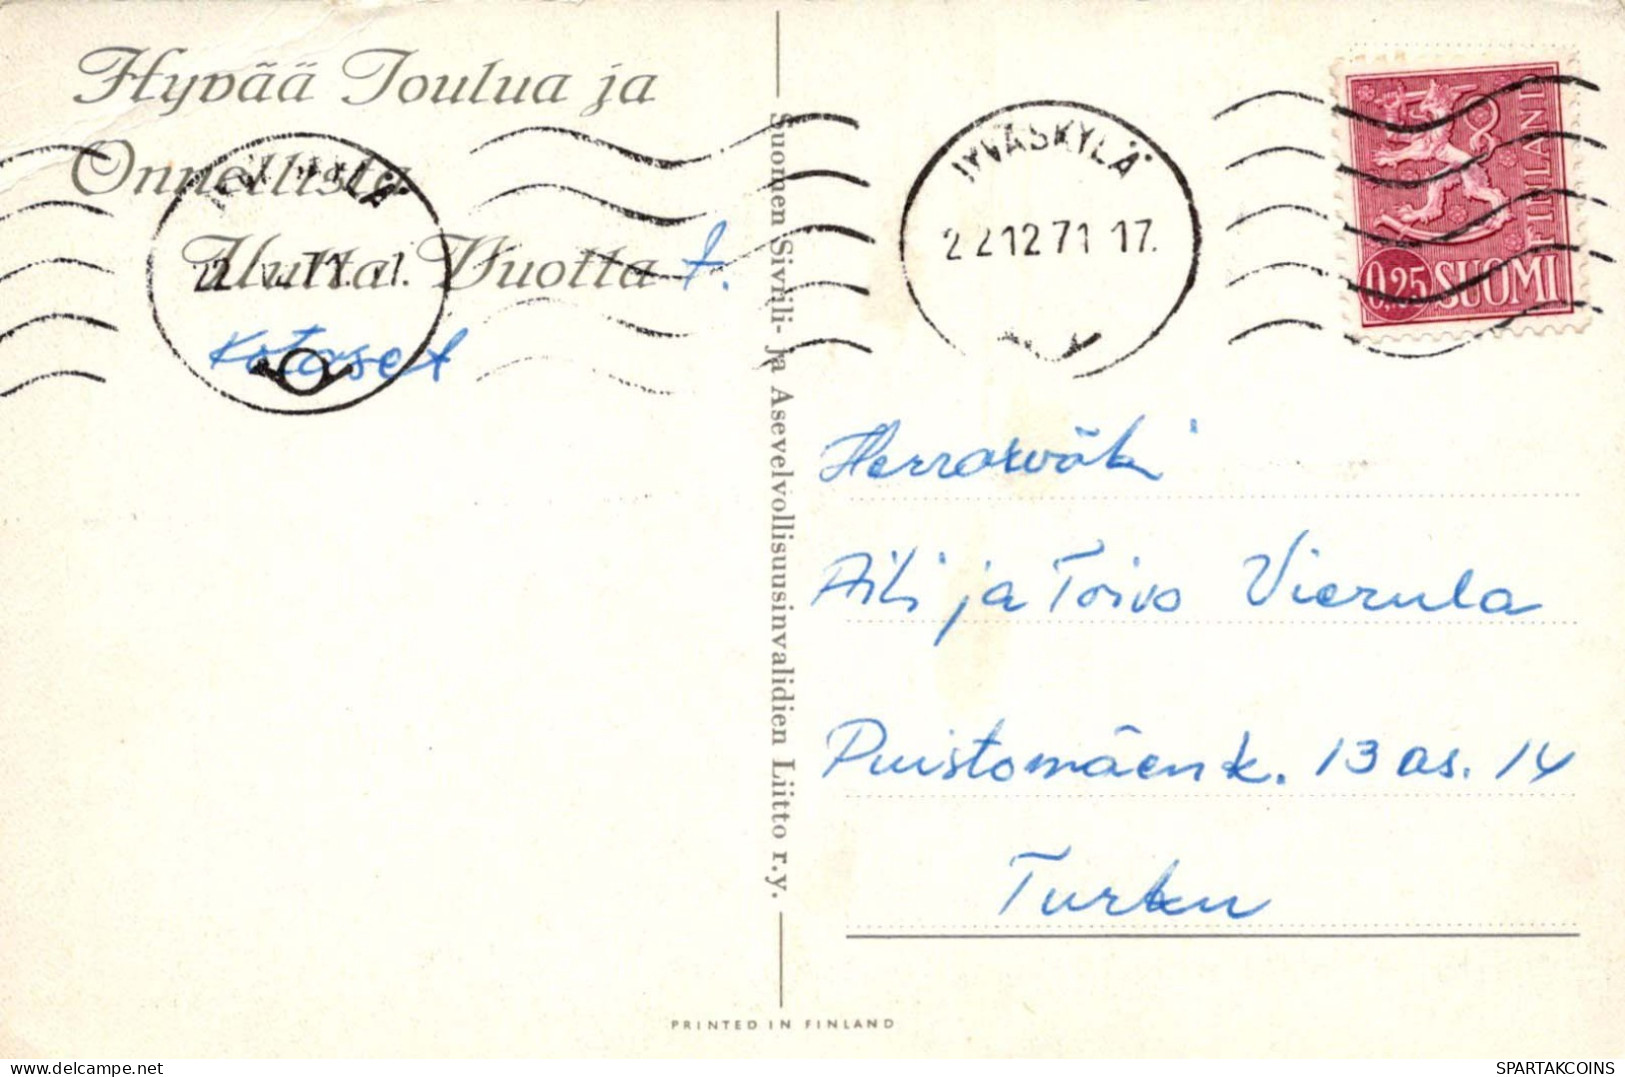 Hyvää Joulua ja
Onnellista
Uutta Vuotta t.
JYVÄSKYLÄ
22.12.71 17.
Suomen Siviili- ja Asevelvollisuusinvalidien Liitto r.y.
JYVÄSKYLÄ
22.12.71 17.
FINLAND
0,25 SUOMI
Herrasväki
Aili ja Toivo Vierula
Puistomäenk. 13 as. 14
Turku
PRINTED IN FINLAND
SPARTAKCOINS